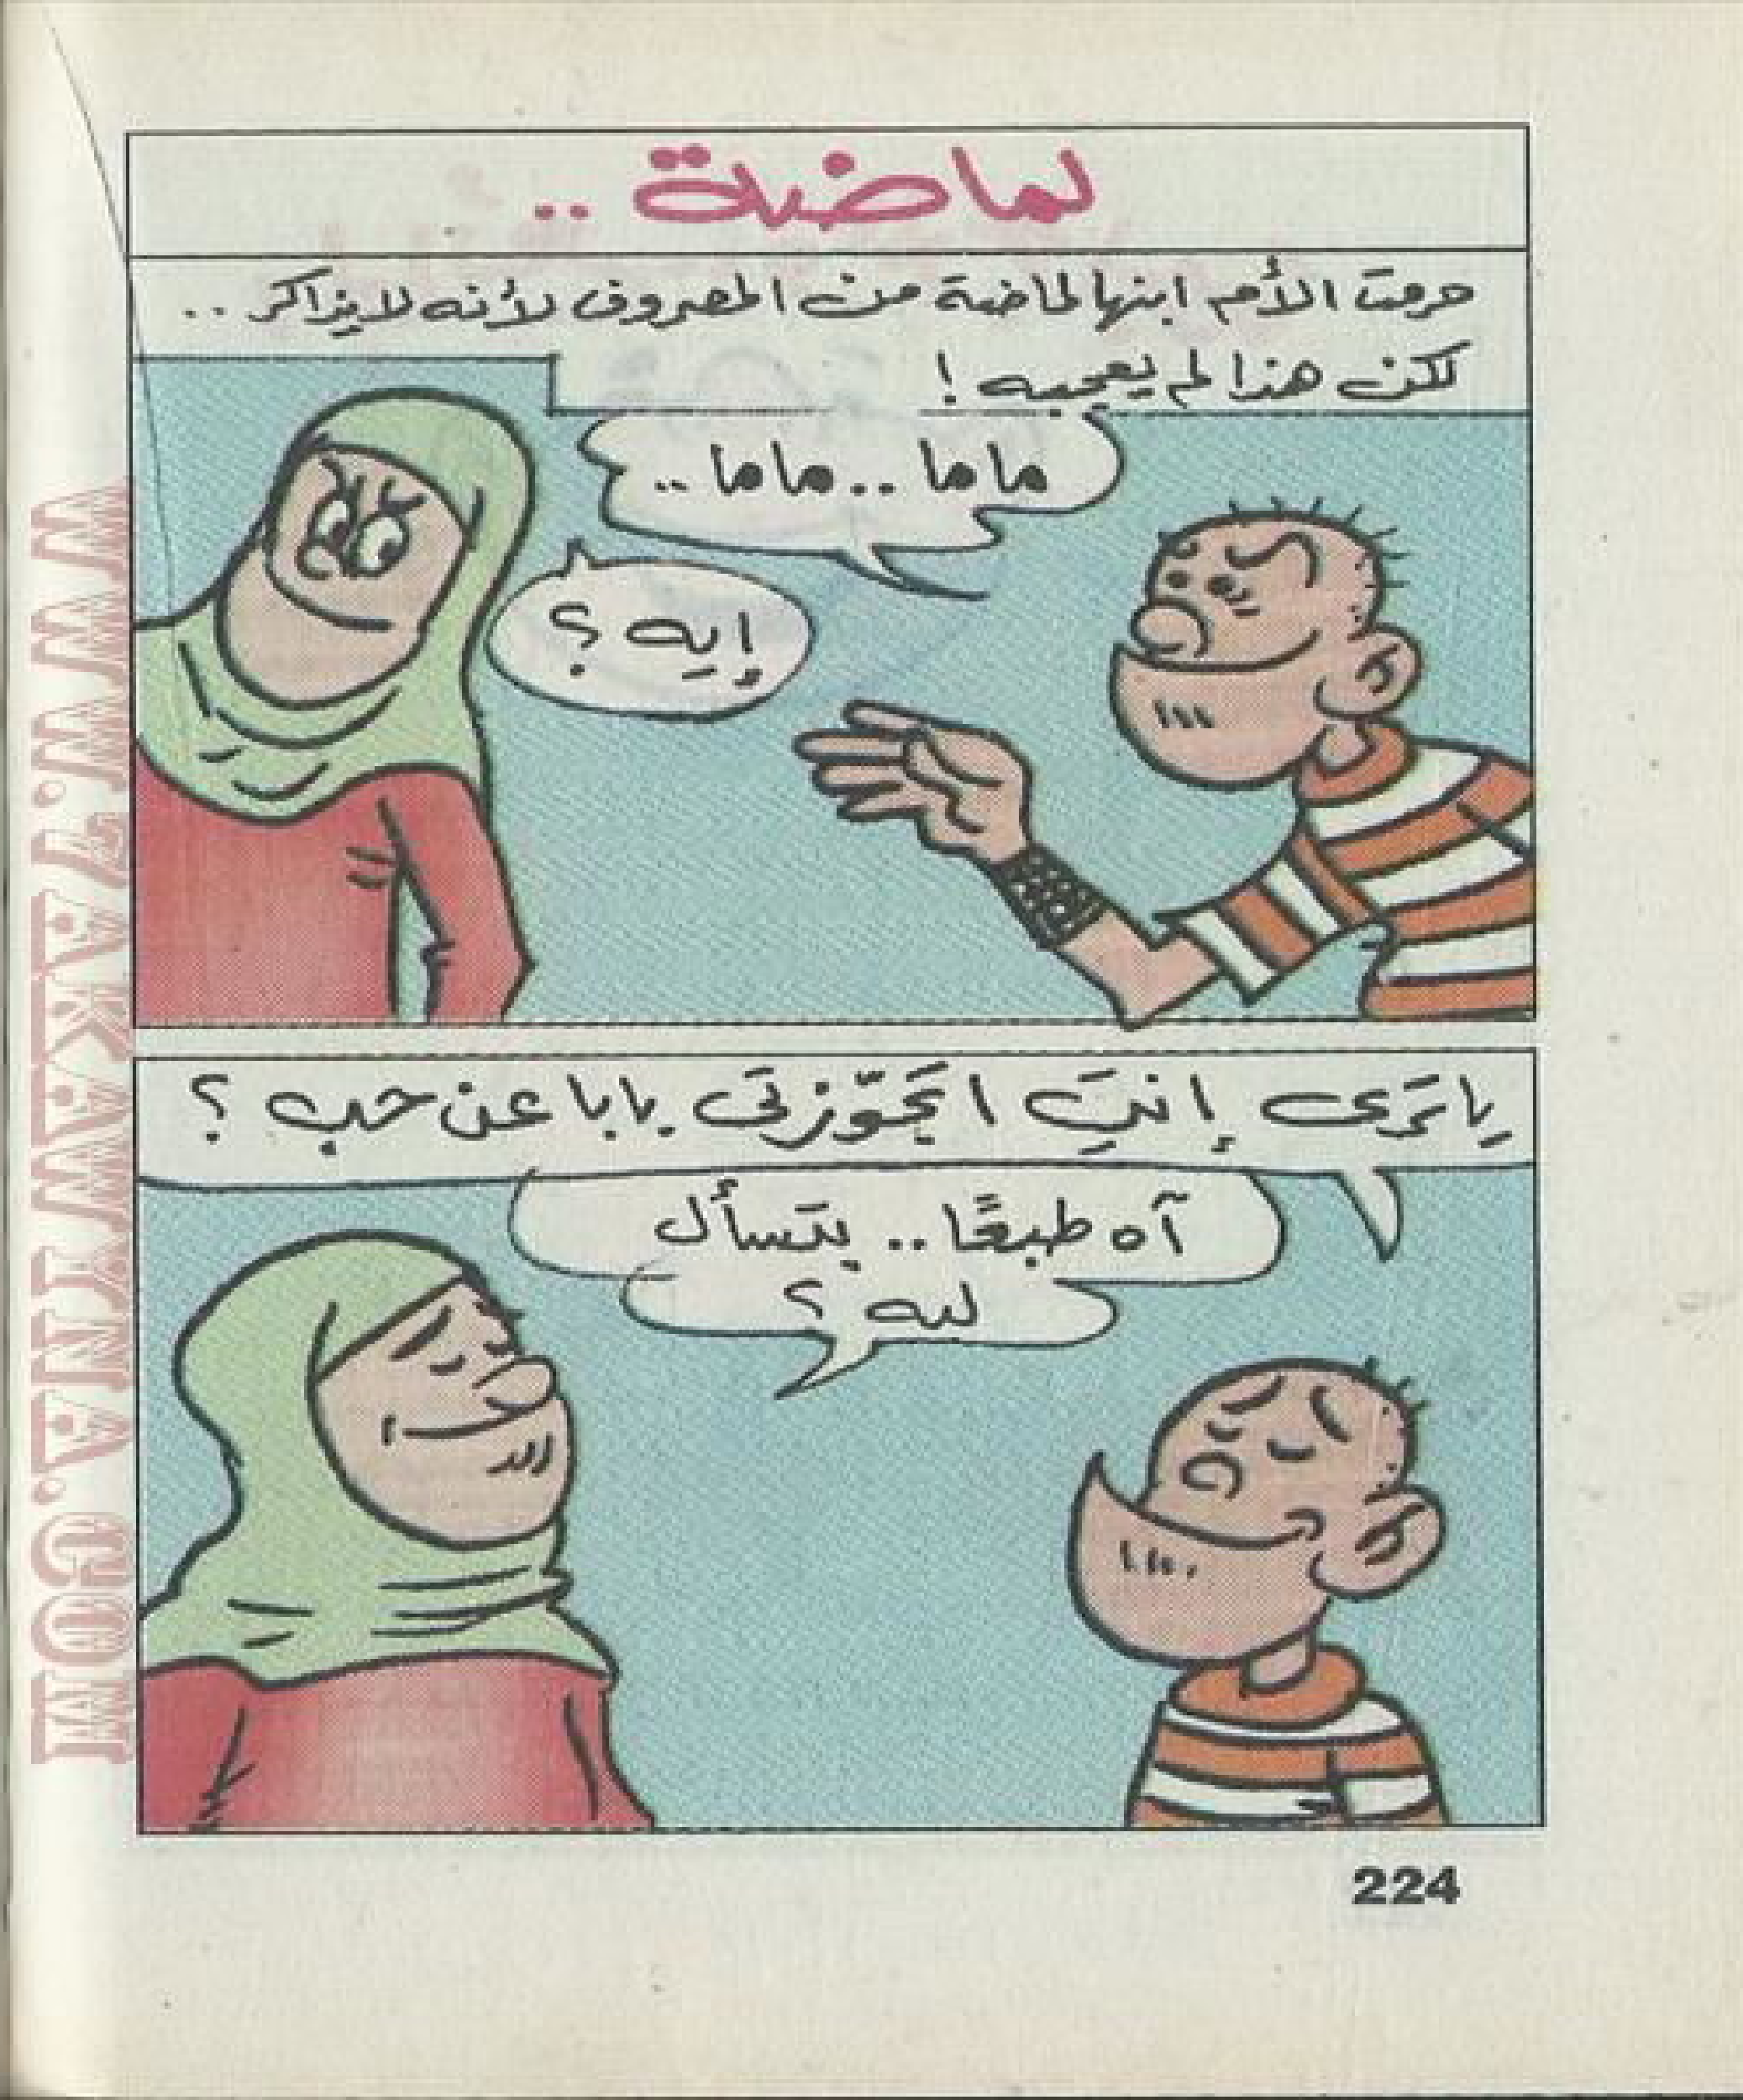 لماضة ..
حرمت الأم ابنها لماضة من المصروف لأنه لا يذاكر ..
لكن هذا لم يعجبه !
ماما .. ماما ..
إيه ؟
يا تَرَى إنتِ اتجَوّزتى بابا عن حب ؟
آه طبعًا .. بتسأل
ليه ؟
224
WWW.7AKAWITNA.COM